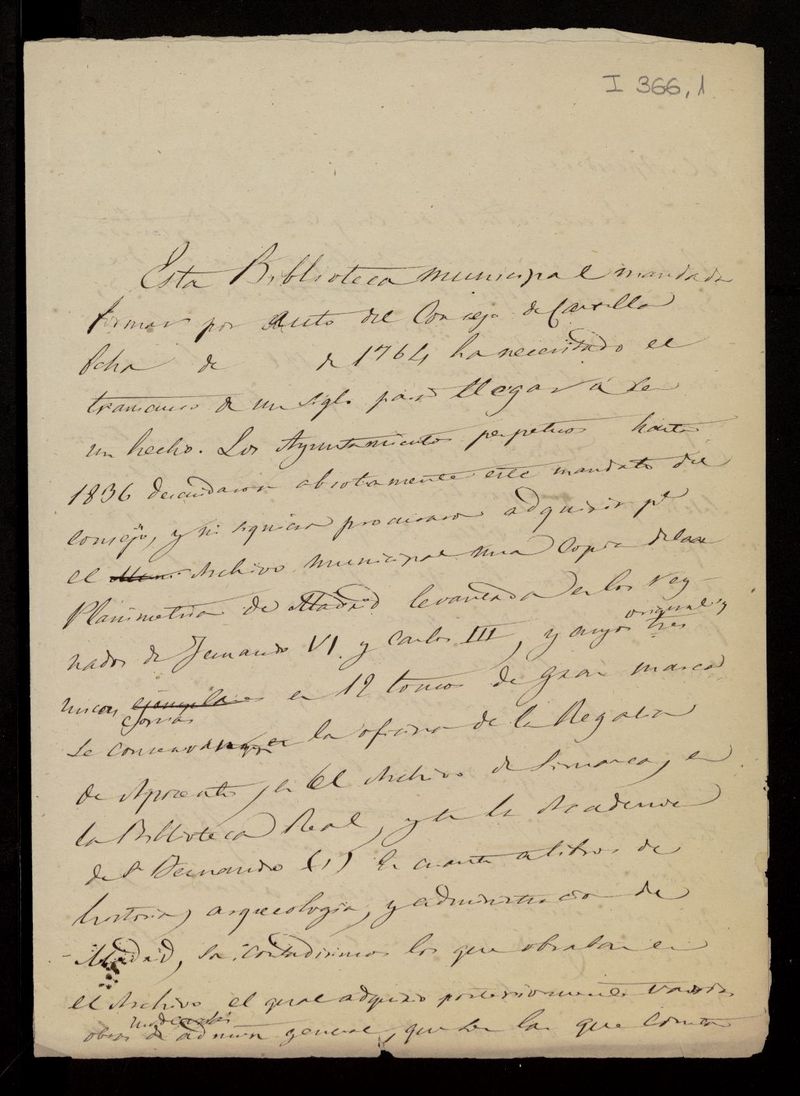 I 366,1
Esta Biblioteca municipal mandada
formar por Auto del Consejo de Castilla
fcha de de 1764 ha necesitado el
transcurso de un siglo para llegar á ser
un hecho. Los Ayuntamientos perpetuos hasta
1836 descuidaron absolutamente este mandato del
consejo, y ni siquiera procuraron adquirir pª
el Archivo municipal una copia de la
Planimetria de Madrid levantada en los rey-
nados de Fernando VI y Carlos III, y cuyos tres
original y
unicas ejemplares en 12 tomos de gran marca
copias
se conservan en la oficina de la Regalia
de Aposento, en el Archivo de Simancas, en
la Biblioteca Real, y en la Academia
de Sn Fernando (1) En cuanto a libros de
historia, arqueologia, y administracion de
Madrid, contadisimos los que obraban en
el Archivo, el qual adquirio posteriormente varias
modernas
obras de admon general, que son las que